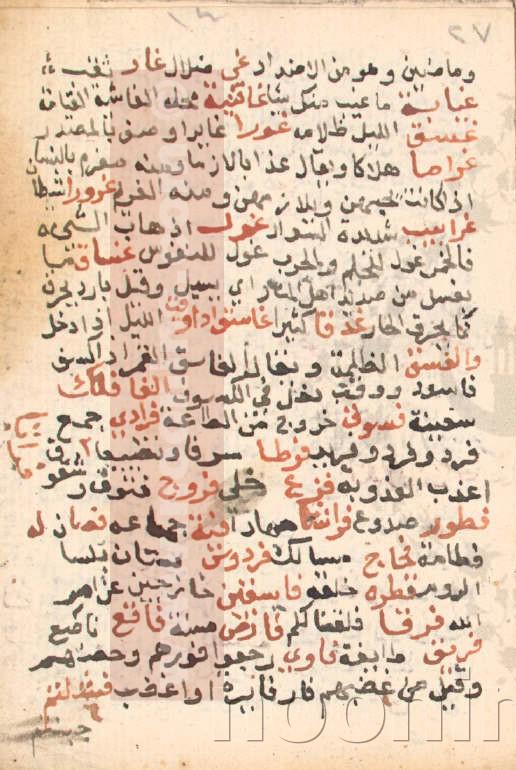 ٢٧
وما ضنين وهو من الاضداد غي ضلال غار ثقب
غيابة ما غيب منك شيئا غاشية مجللة الغاشية القيامة
غسق الليل ظلامه غورا غايرا وصف بالمصدر
غراما هلاكا ويقال عذابا لازما ومنه مغرم بالنساء
اذا كان يحبهن ويلازمهن ومنه الغريم غرورا شيطانا
غرابيب شديدة السواد غول اذهاب الشيء
فالخمر غول للحلم والحرب غول للنفوس غساق ما
يغسل من صديد اهل النار اي يسيل وقيل بارد يحرق
كما يحرق الحار غدقا كثيرا غاسق اذا وقب الليل اذا دخل
والغسق الظلمة ويقال الغاسق القمر اذا كسف
فاسود ووقب دخل في الكسوف الفا فلك
سفينة فسوق خروج من الطاعة فرادى جمع
فرد وفرد وفريد فرطا سرفا وتضييعا فرات
اعذب العذوبة فزع خلى فروج فتوق وشقوق
فطور صدوع فراشا مهادا فئة جماعة فصاله
فطامه فجاج مسالك فردوس بستان بلسان
الروم فطرة خلقة فاسقين خارجين عن امر
الله فرقنا فلقنا لكم فارض مسنة فاقع ناصع
فريق طايفة فاوي رجعوا فورهم وجههم
وقيل من غضبهم فار فايره اذا غضب فشلتم
جبنتم